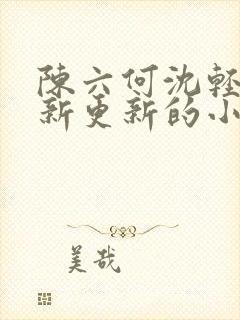 陳六何沈輕
新更新的小
美哉